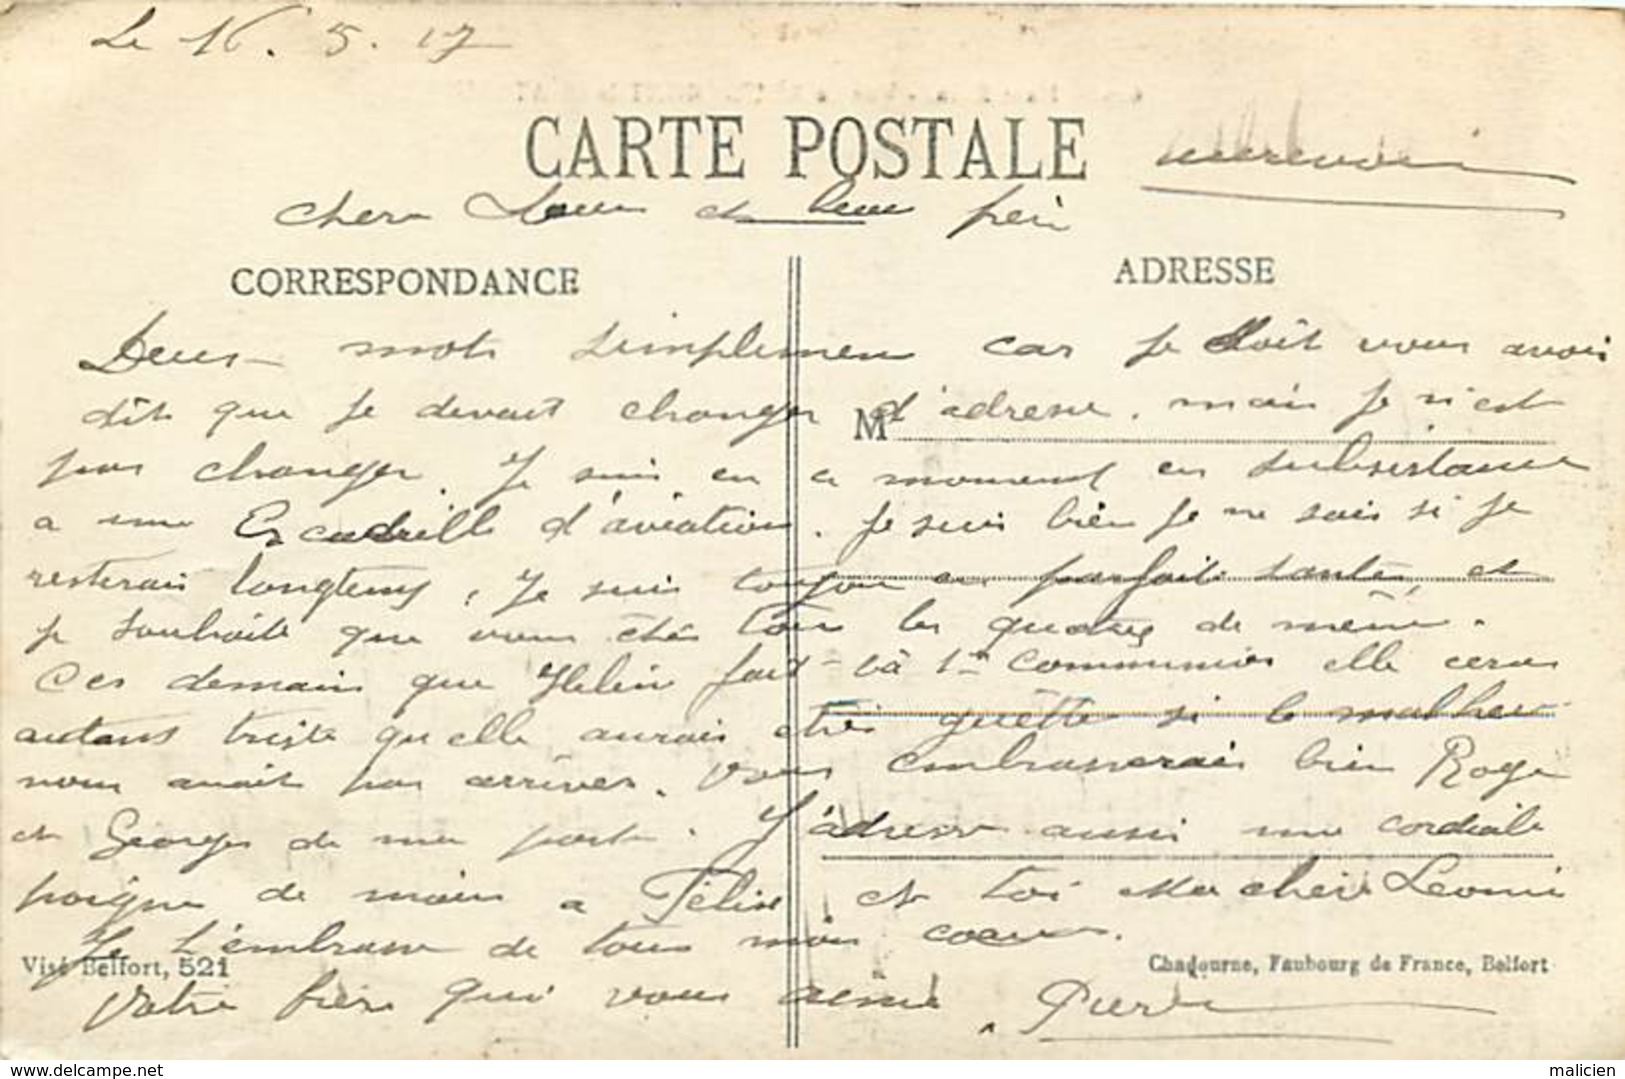 Le 16. 5. 17
CARTE POSTALE
aurevoir
Chere Soeur et beau frère
CORRESPONDANCE
ADRESSE
Deux mots simplement car je doit vous avoir
dit que je devait changer d'adresse. mais je n'est
M
pas changer. Je suis en ce moment en subsistance
a une Escadrille d'aviation. Je suis bien je ne sais si je
resterais longtemps, Je suis toujour en parfaite santée, et
je souhaite que vous êtês tous les quatres de même.
Ces demain que Helène fait sâ 1re Communion elle ceras
autans triste qu'elle aurais etés guêtte si le malheur
nous avait pas arriver. Vous embrasserais bien Roger
et Georges de ma part. J'adresse aussi une cordiale
poigne de main a Félix et toi Ma chère Leonie
Je t'embrasse de tous mon coeur.
Visé Belfort, 521
Chadourne, Faubourg de France, Belfort
Votre frère qui vous aime Pierre
www.delcampe.net
malicien